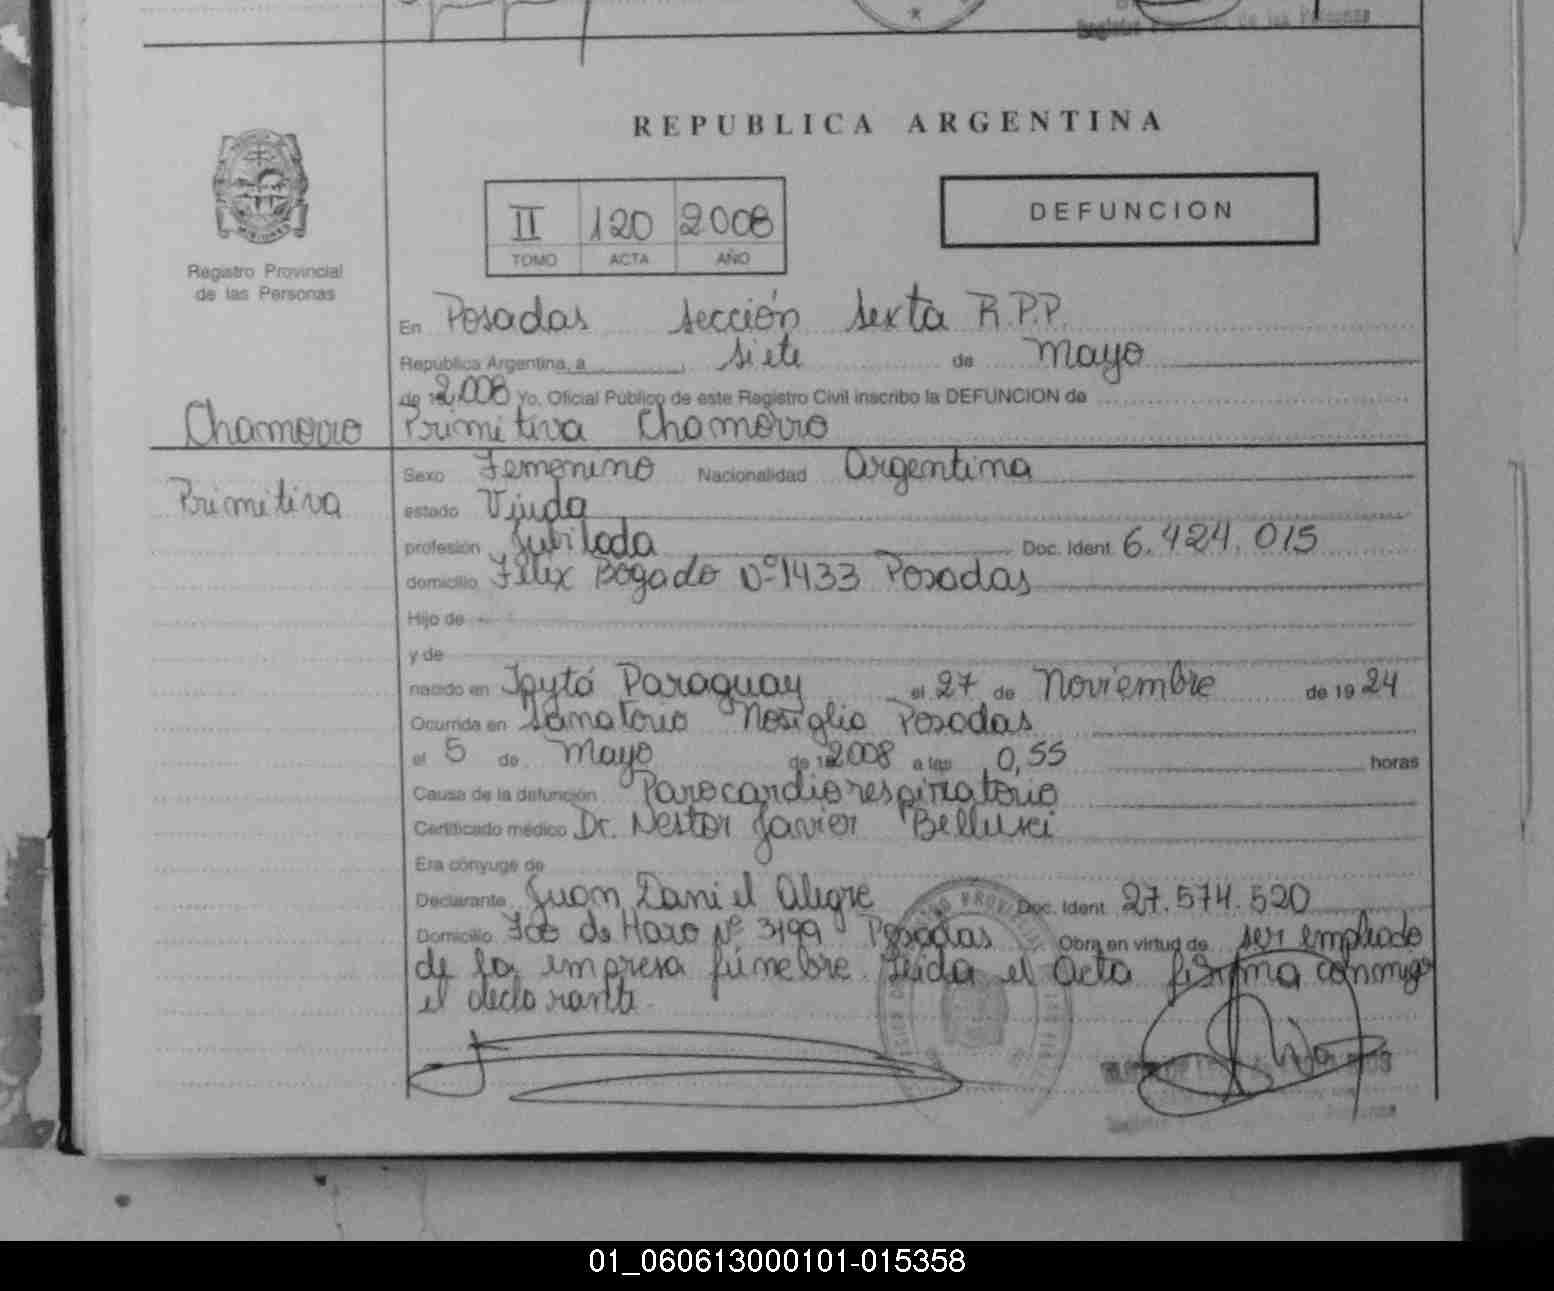 REPUBLICA ARGENTINA
II 120 2008
TOMO ACTA AÑO
DEFUNCION
Registro Provincial
de las Personas
En Posadas sección sexta R.P.P.
República Argentina, a siete de Mayo
de 2008 Yo, Oficial Público de este Registro Civil inscribo la DEFUNCION de
Chamorro Primitiva Chamorro
Primitiva
Sexo Femenino Nacionalidad Argentina
estado Viuda
profesión Jubilada Doc. Ident. 6.424.015
domicilio Félix Bogado Nº 1433 Posadas
Hijo de
y de
nacido en Paraguay el 27 de Noviembre de 1924
Ocurrida en Sanatorio Nosiglia Posadas
el 5 de Mayo de 2008 a las 0,55 horas
Causa de la defunción Parocardiorespiratorio
Certificado médico Dr. Nestor Javier
Era cónyuge de
Declarante Juan Daniel Alegre Doc. Ident. 27.574.520
Domicilio de Haro Nº 3199 Posadas Obra en virtud de ser empleado
de la empresa fúnebre. Leida el acta firma conmigo
el declarante.
01_060613000101-015358